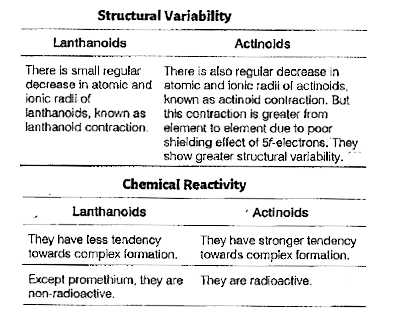 Structural Variability
Lanthanoids Actinoids
There is small regular There is also regular decrease in
decrease in atomic and atomic and ionic radii of actinoids,
ionic radii of known as actinoid contraction. But
lanthanoids, known as this contraction is greater from
lanthanoid contraction. element to element due to poor
shielding effect of 5f-electrons. They
show greater structural variability.
Chemical Reactivity
Lanthanoids Actinoids
They have less tendency They have stronger tendency
towards complex formation. towards complex formation.
Except promethium, they are They are radioactive.
non-radioactive.